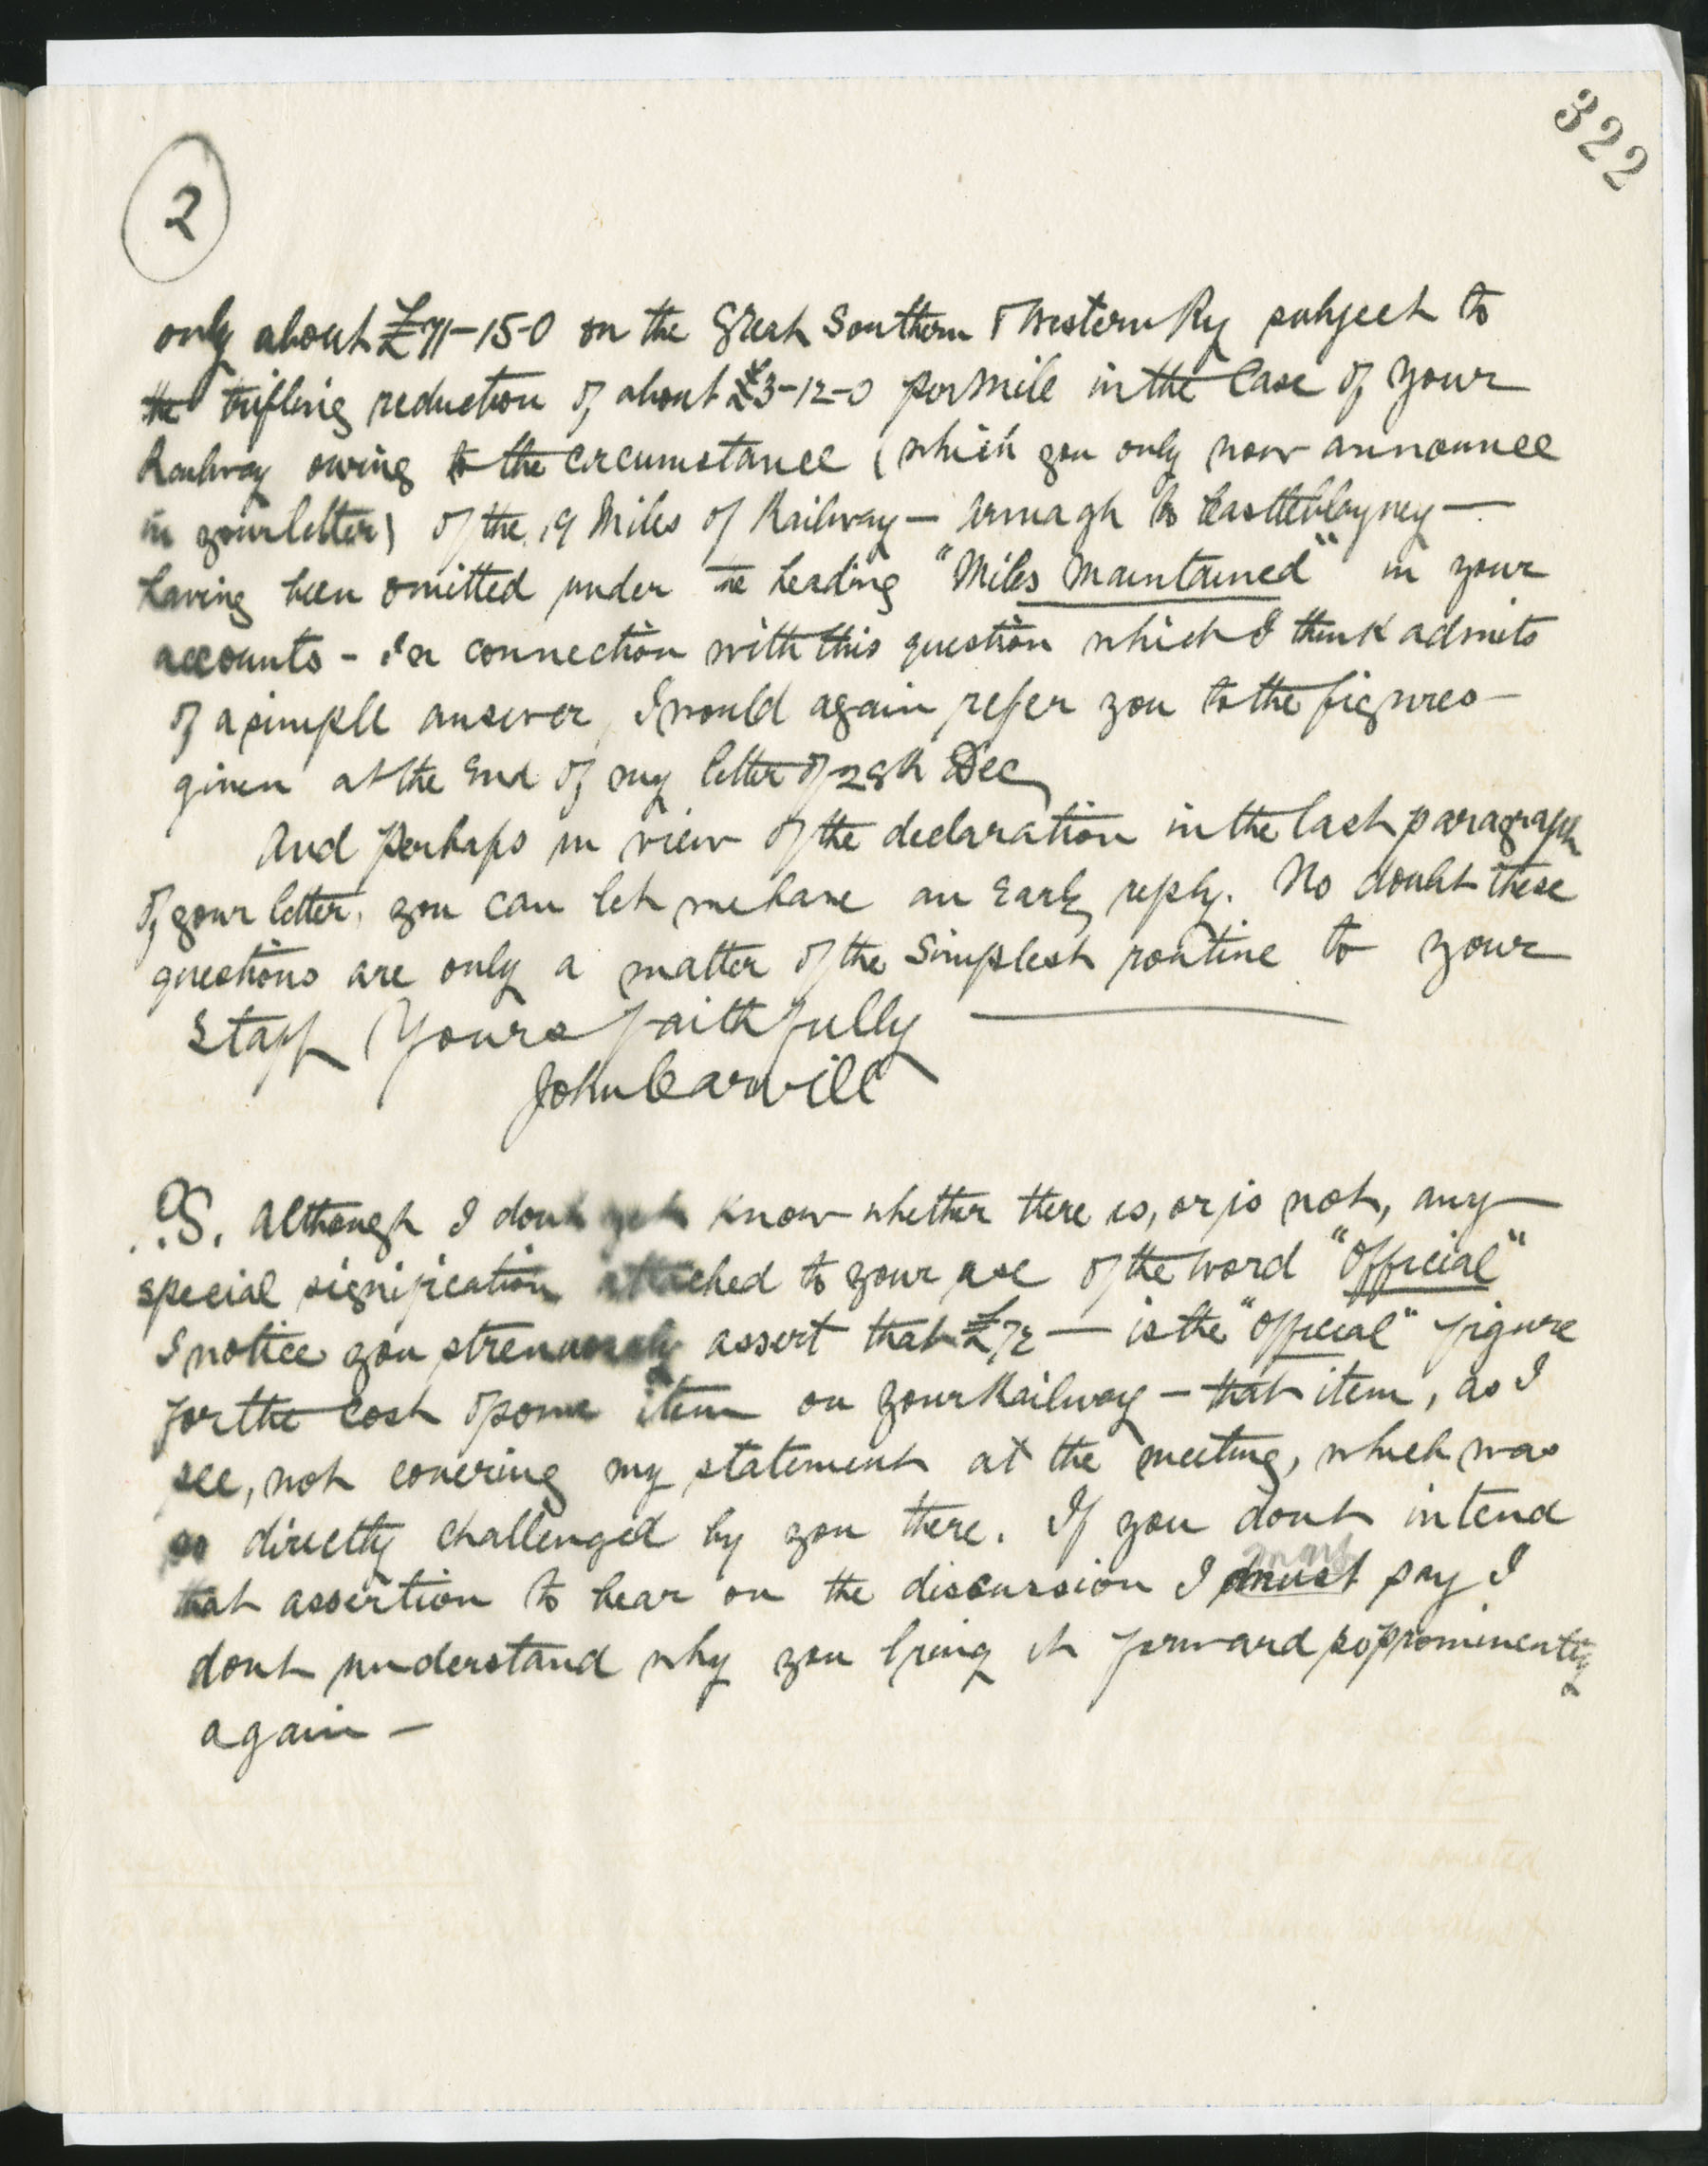 322
2
only about £71-15-0 on the Great Southern & Western Ry subject to
the trifling reduction of about £3-12-0 per Mile in the Case of your
Railway owing to the circumstance (which you only now announce
in your letter) of the 19 Miles of Railway — Armagh to Castleblayney —
having been omitted under the heading "Miles Maintained" in your
accounts - In connection with this question which I think admits
of a simple answer, I would again refer you to the figures
given at the End of my letter of 28th Dec
And perhaps in view of the declaration in the last paragraph
of your letter, you can let me have an Early reply. No doubt these
questions are only a matter of the Simplest routine to your
Staff Yours faithfully
John Carvill
P.S. Although I dont yet know whether there is, or is not, any
special signification attached to your use of the word "Official"
I notice you strenuously assert that £72 — is the "official" figure
for the cost of some item on your Railway — that item, as I
see, not covering my statement at the meeting, which was
so directly challenged by you there. If you dont intend
that assertion to bear on the discussion I must say I
dont understand why you bring it forward so prominently
again —